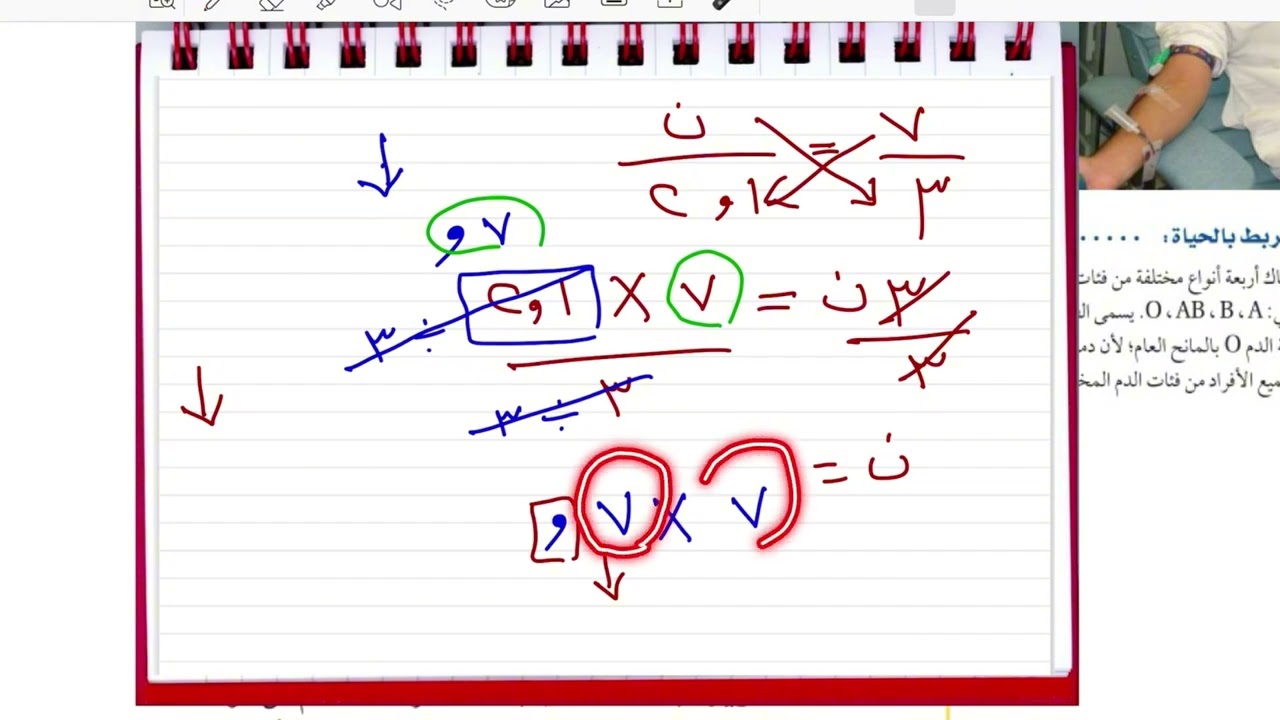 ٧ = ن
٣ ٢,١
,٧
٣ن = ٧ × ٢,١ ÷ ٣
٣ ٣ ÷ ٣
ن = ٧ × ,٧
ربط بالحياة: .....
اك أربعة أنواع مختلفة من فئات
: O ، AB ، B ، A. يسمى
الدم O بالمانح العام؛ لأن دم
ميع الأفراد من فئات الدم المخ